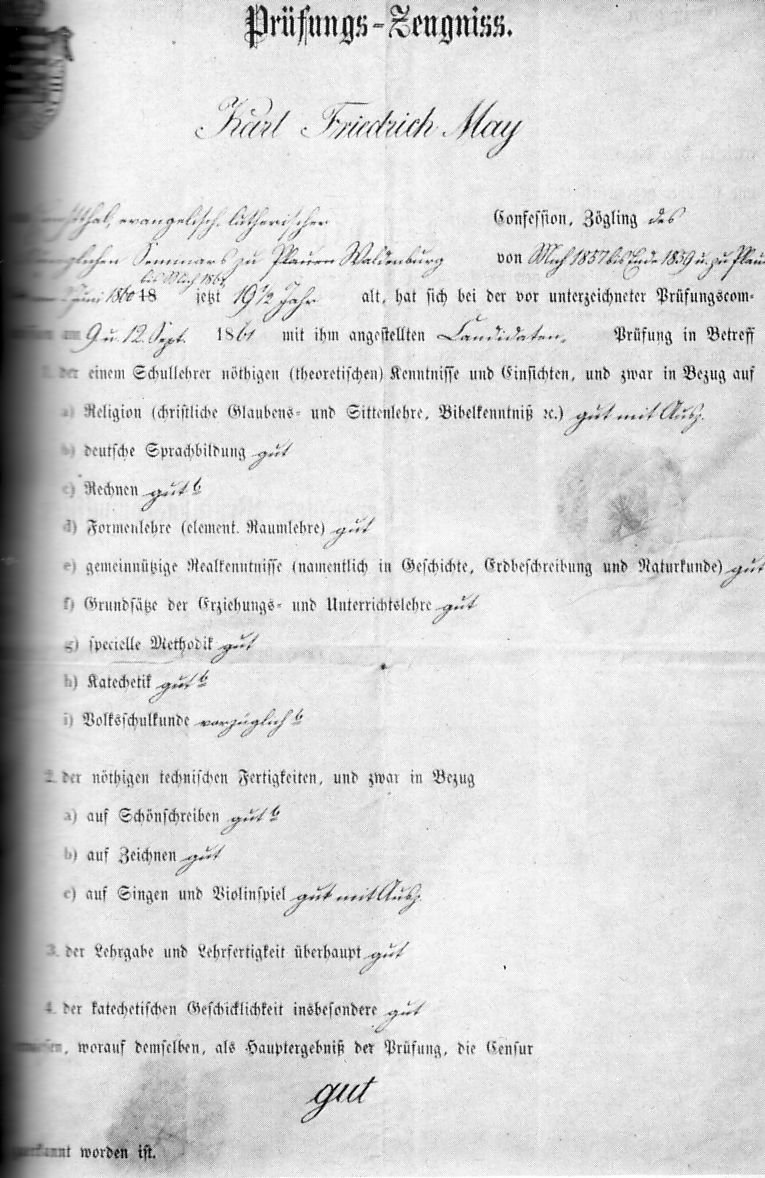 Prüfungs-Zeugniss.
Karl Friedrich May
evangelisch-lutherischer Confession, Zögling des
Seminars zu Plauen Waldenburg von Mich 1857 bis Ende 1859 u. zu Plauen
bis Mich 1861
Juni 1860 18 jetzt 19 1/2 Jahr alt, hat sich bei der vor unterzeichneter Prüfungscom-
am 9 u. 12. Sept. 1861 mit ihm angestellten Candidaten- Prüfung in Betreff
1. der einem Schullehrer nöthigen (theoretischen) Kenntnisse und Einsichten, und zwar in Bezug auf
a) Religion (christliche Glaubens- und Sittenlehre, Bibelkenntniß ꝛc.) gut mit Ausz.
b) deutsche Sprachbildung gut
c) Rechnen gut b
d) Formenlehre (element. Raumlehre) gut
e) gemeinnützige Realkenntnisse (namentlich in Geschichte, Erdbeschreibung und Naturkunde) gut
f) Grundsätze der Erziehungs- und Unterrichtslehre gut
g) specielle Methodik gut
h) Katechetik gut b
i) Volksschulkunde vorzüglich b
2. der nöthigen technischen Fertigkeiten, und zwar in Bezug
a) auf Schönschreiben gut b
b) auf Zeichnen gut
c) auf Singen und Violinspiel gut mit Ausz.
3. der Lehrgabe und Lehrfertigkeit überhaupt gut
4. der katechetischen Geschicklichkeit insbesondere gut
worauf demselben, als Hauptergebniß der Prüfung, die Censur
gut
zuerkannt worden ist.